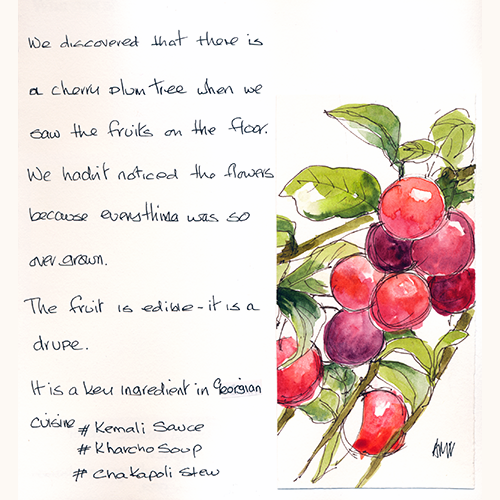 We discovered that there is
a cherry plum tree when we
saw the fruits on the floor.
We hadn't noticed the flowers
because everything was so
over grown.
The fruit is edible - it is a
drupe.
It is a key ingredient in Georgian
cuisine
# Kemali Sauce
# Kharcho Soup
# Chakapoli Stew